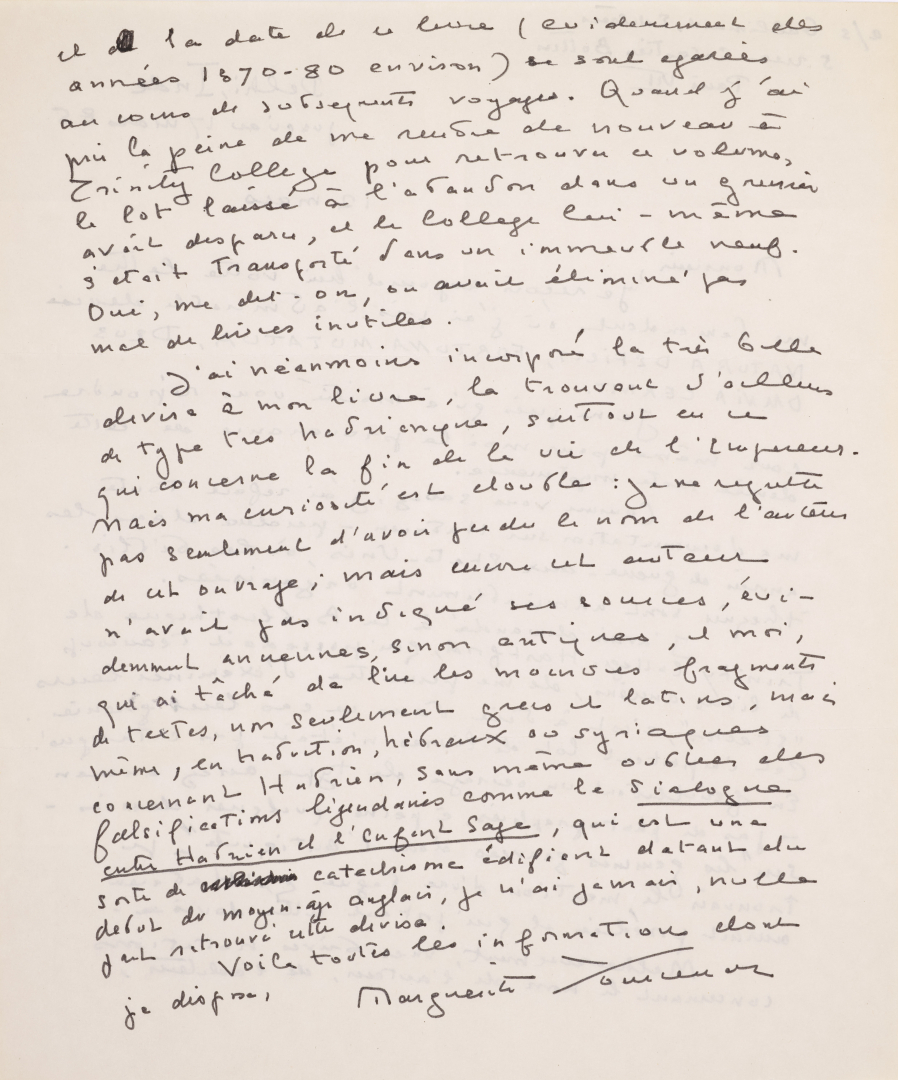 et la date de ce livre (évidemment des
années 1870-80 environ) se sont égarées
au cours de subséquents voyages. Quand j'ai
pris la peine de me rendre de nouveau à
Trinity College pour retrouver ce volume,
le lot laissé à l'abandon dans un grenier
avait disparu, et le College lui-même
s'était transporté dans un immeuble neuf.
Oui, me dit-on, on avait éliminé pas
mal de livres inutiles.
J'ai néanmoins incorporé la très belle
devise à mon livre, la trouvant d'ailleurs
de type très hadrienique, surtout en ce
qui concerne la fin de la vie de l'Empereur.
Mais ma curiosité est double : je ne regrette
pas seulement d'avoir perdu le nom de l'auteur
de cet ouvrage ; mais encore cet auteur
n'avait pas indiqué ses sources, évi-
demment anciennes, sinon antiques, et moi,
qui ai tâché de lire les moindres fragments
de textes, non seulement grecs et latins, mais
même, en traduction, hébreux ou syriaques
concernant Hadrien, sans même oublier des
falsifications légendaires comme le Dialogue
entre Hadrien et l'Enfant Sage, qui est une
sorte de catéchisme édifiant datant du
début du moyen-âge anglais, je n'ai jamais, nulle
part retrouvé cette devise.
Voila toutes les informations dont
je dispose,
Marguerite Yourcenar